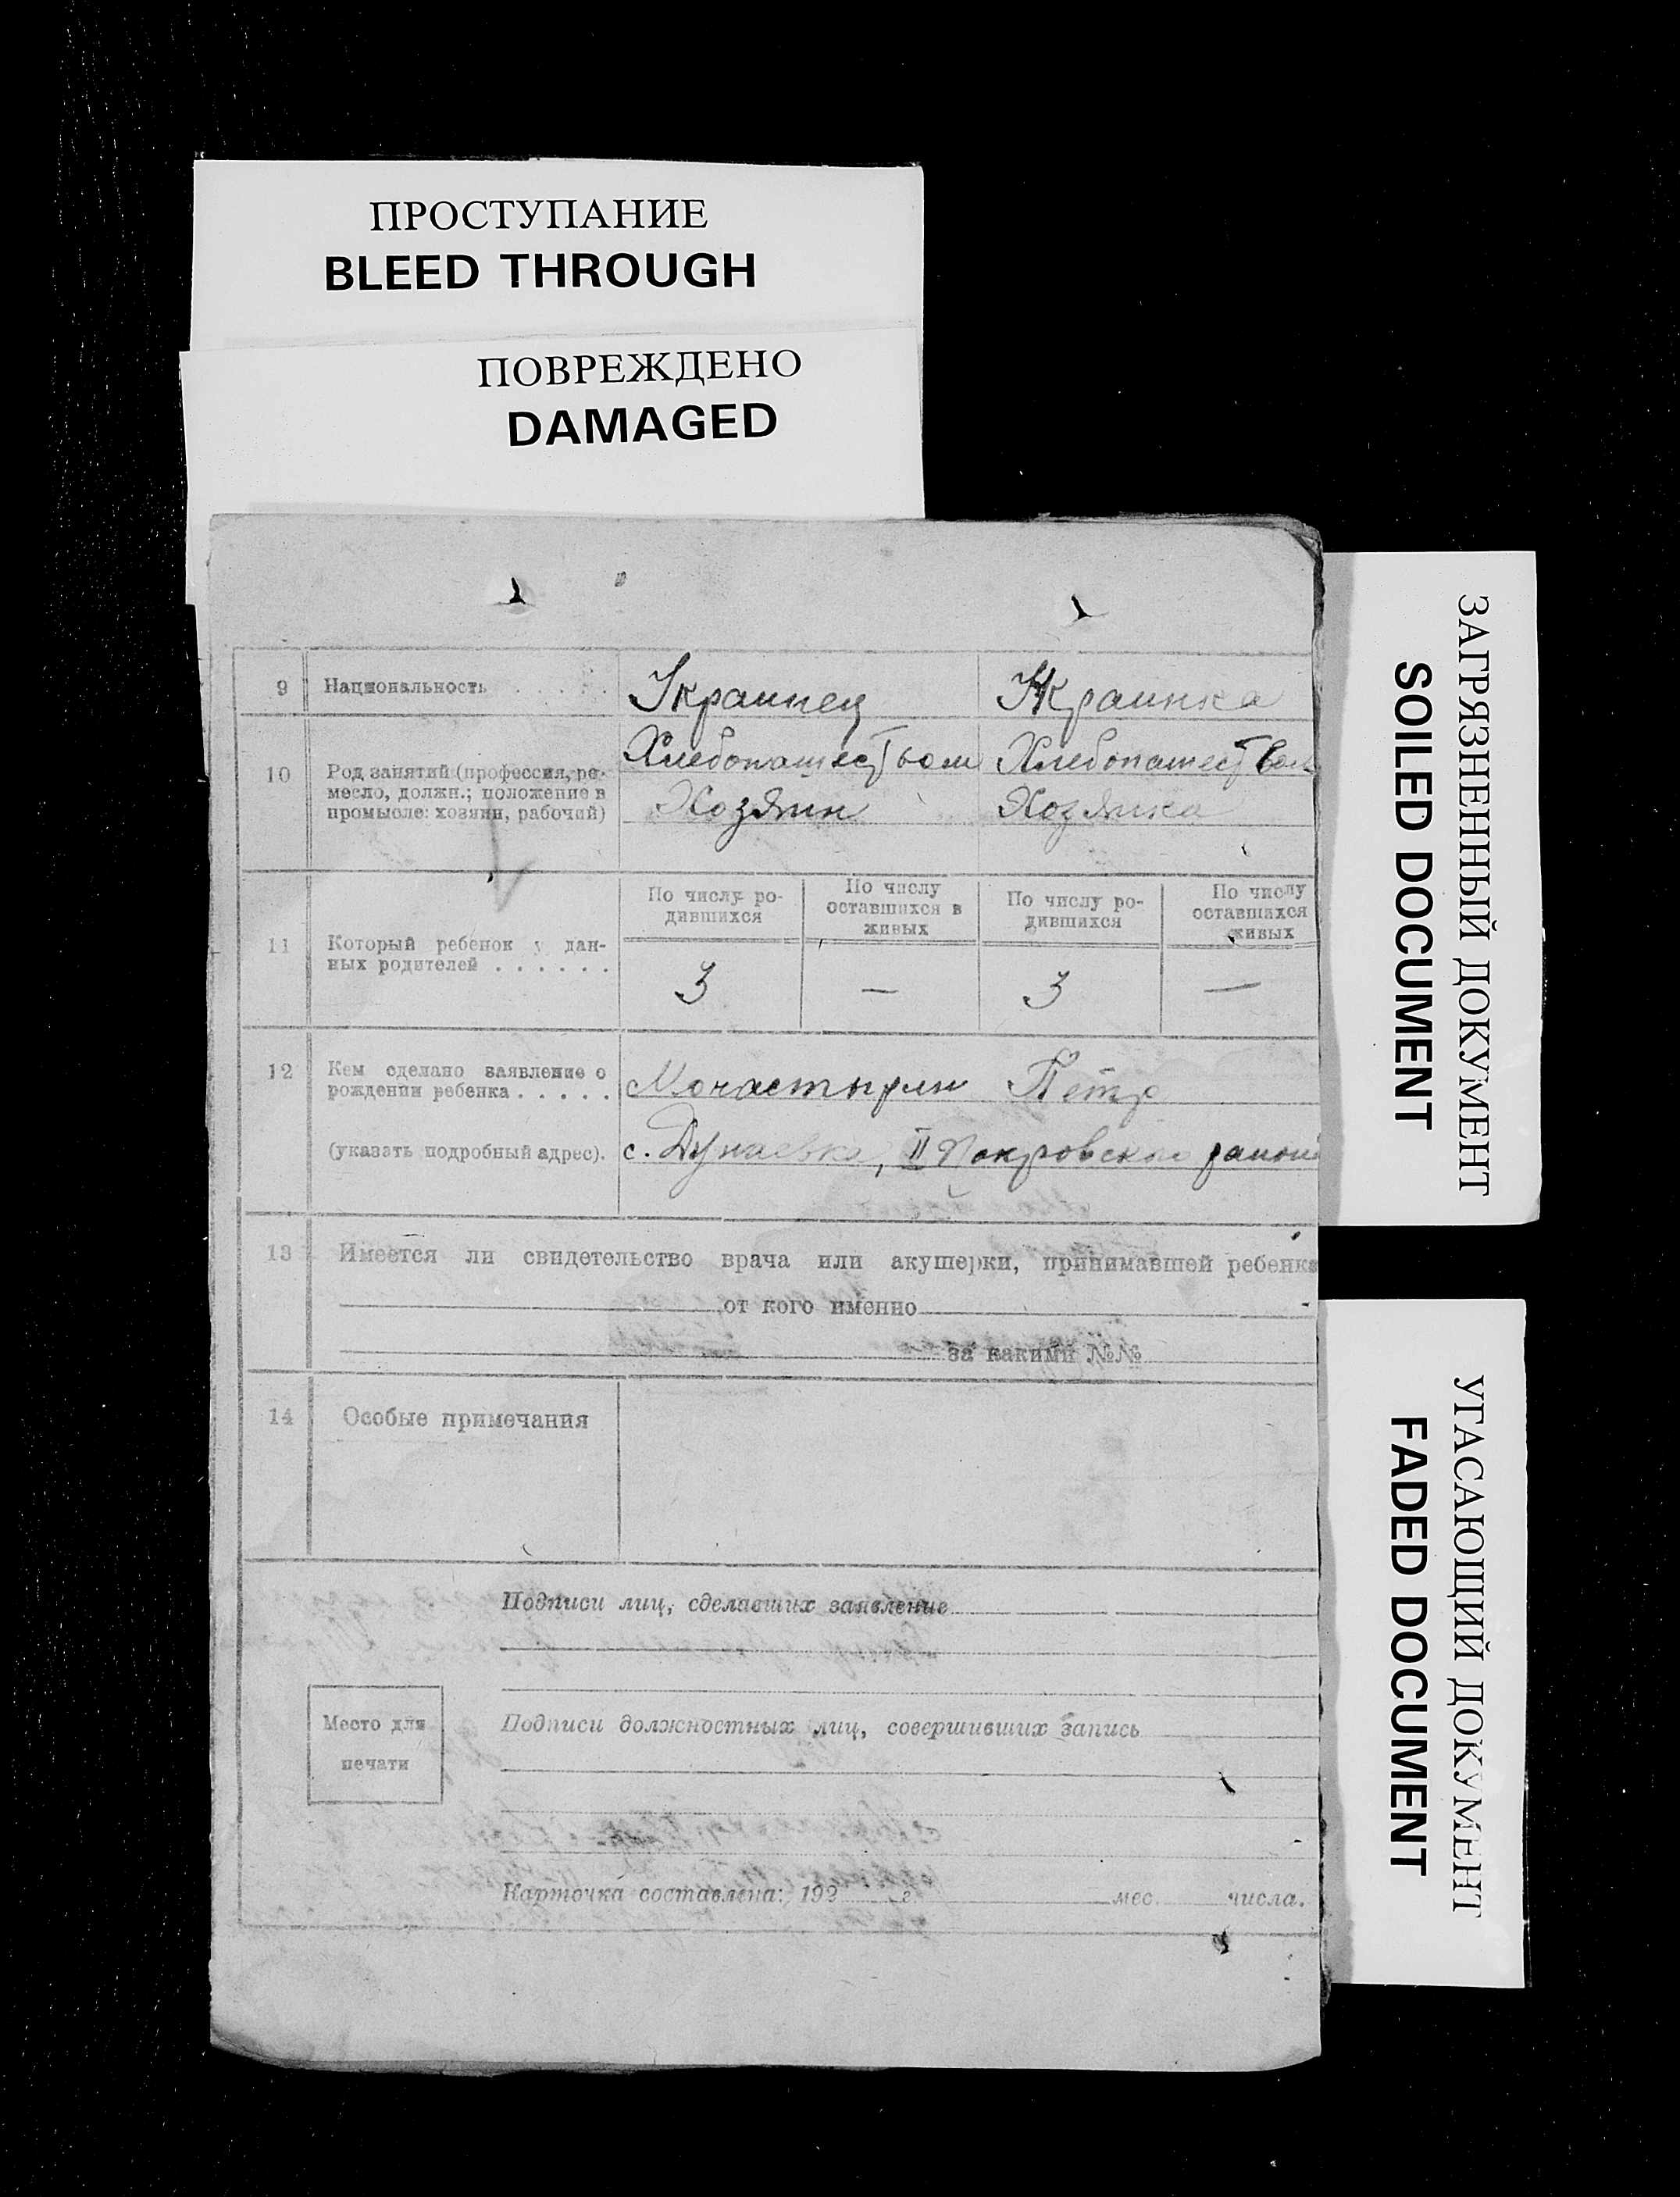 ПРОСТУПАНИЕ
BLEED THROUGH
ПОВРЕЖДЕНО
DAMAGED
ЗАГРЯЗНЕННЫЙ ДОКУМЕНТ
SOILED DOCUMENT
УГАСАЮЩИЙ ДОКУМЕНТ
FADED DOCUMENT
9 Национальность . . . . . Украинец Украинка
10 Род занятий (профессия, ре-
месло, должн.; положение в
промысле: хозяин, рабочий)
Хлебопашеством Хлебопашеством
Хозяин Хозяйка
11 Который ребенок у дан-
ных родителей . . . . . .
По числу ро-
дившихся
По числу
оставшихся в
живых
По числу ро-
дившихся
По числу
оставшихся
живых
3 — 3 —
12 Кем сделано заявление о
рождении ребенка . . . . .
Монастырли Петр
(указать подробный адрес).
с. Дунаевка, II Покровского район
13 Имеется ли свидетельство врача или акушерки, принимавшей ребенка
от кого именно
за какими №№
14 Особые примечания
Подписи лиц, сделавших заявление
Место для
печати
Подписи должностных лиц, совершивших запись
Карточка составлена: 192 г мес. числа.